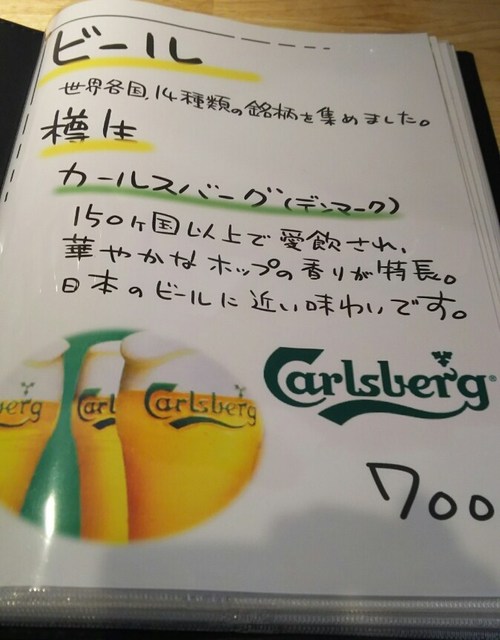 ビール
世界各国、14種類の銘柄を集めました。
樽生
カールスバーグ(デンマーク)
150ヶ国以上で愛飲され、
華やかなホップの香りが特長。
日本のビールに近い味わいです。
erg Carl Carlsberg
Carlsberg®
700